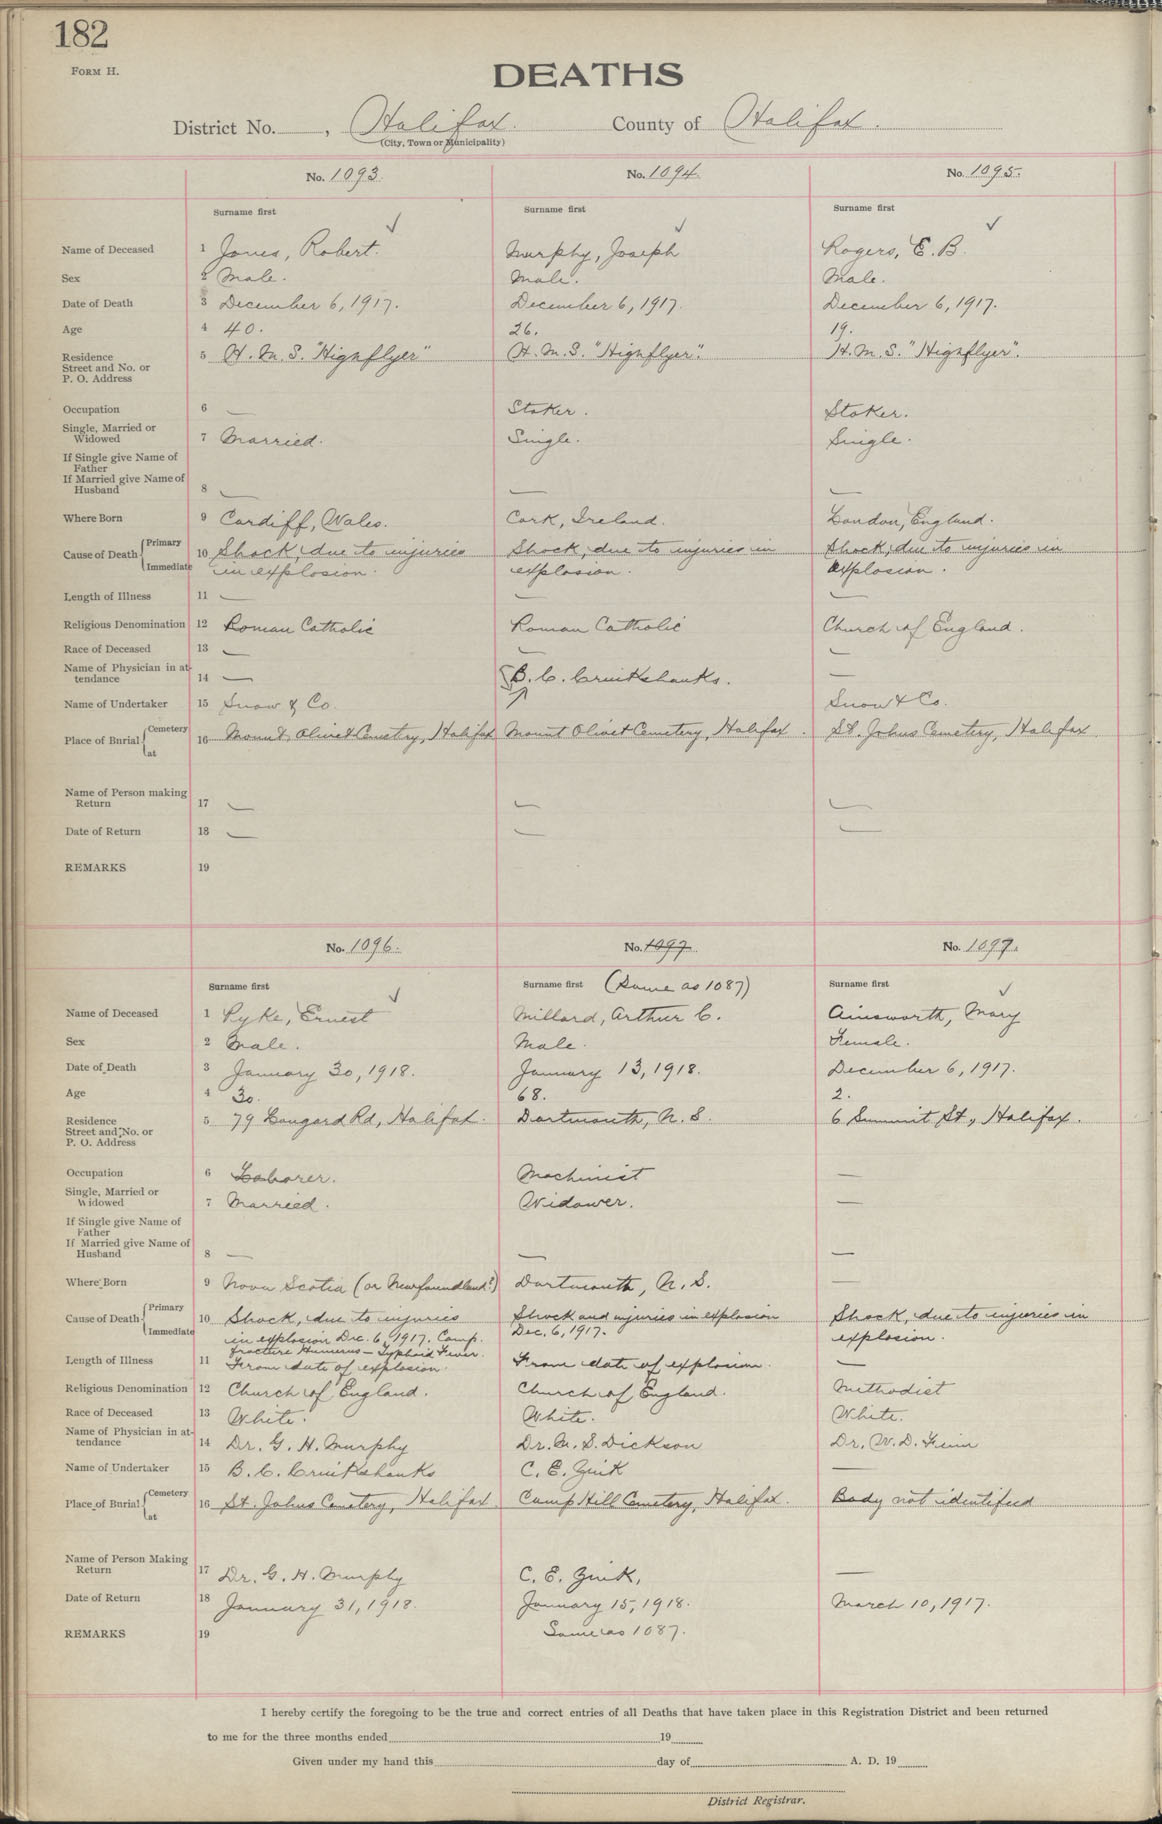 182
FORM H.
DEATHS
District No. , Halifax. County of Halifax.
(City, Town or Municipality)
No. 1093. No. 1094. No. 1095.
Surname first Surname first Surname first
Name of Deceased 1 Jones, Robert. Murphy, Joseph Rogers, E. B.
Sex 2 Male. Male. Male.
Date of Death 3 December 6, 1917. December 6, 1917. December 6, 1917.
Age 4 40. 26. 19.
Residence 5 H. M. S. "Highflyer" H. M. S. "Highflyer". H. M. S. "Highflyer".
Street and No. or
P. O. Address
Occupation 6 — Stoker. Stoker.
Single, Married or
Widowed 7 Married. Single. Single.
If Single give Name of
Father
If Married give Name of
Husband 8 — — —
Where Born 9 Cardiff, Wales. Cork, Ireland. London, England.
Cause of Death { Primary Immediate 10 Shock, due to injuries Shock, due to injuries in Shock, due to injuries in
in explosion. explosion. explosion.
Length of Illness 11 — — —
Religious Denomination 12 Roman Catholic Roman Catholic Church of England.
Race of Deceased 13 — — —
Name of Physician in at-
tendance 14 — B. C. Cruikshanks. —
Name of Undertaker 15 Snow & Co. Snow & Co.
Place of Burial { Cemetery at 16 Mount Olivet Cemetry, Halifax Mount Olivet Cemetery, Halifax. St. Johns Cemetery, Halifax
Name of Person making
Return 17 — — —
Date of Return 18 — — —
REMARKS 19
No. 1096. No. 1097. No. 1097.
Surname first Surname first (Same as 1087) Surname first
Name of Deceased 1 Pyke, Ernest Millard, Arthur C. Ainsworth, Mary
Sex 2 Male. Male. Female.
Date of Death 3 January 30, 1918. January 13, 1918. December 6, 1917.
Age 4 30. 68. 2.
Residence 5 79 Longard Rd, Halifax. Dartmouth, N. S. 6 Summit St., Halifax.
Street and No. or
P. O. Address
Occupation 6 Laborer. Machinist —
Single, Married or
Widowed 7 Married. Widower. —
If Single give Name of
Father
If Married give Name of
Husband 8 — — —
Where Born 9 Nova Scotia (or Newfoundland?) Dartmouth, N. S. —
Cause of Death { Primary Immediate 10 Shock, due to injuries Shock and injuries in explosion Shock, due to injuries in
in explosion Dec. 6, 1917. Comp. Dec. 6, 1917. explosion.
fracture Humerus — Typhoid Fever.
Length of Illness 11 From date of explosion. From date of explosion. —
Religious Denomination 12 Church of England. Church of England. Methodist
Race of Deceased 13 White. White. White.
Name of Physician in at-
tendance 14 Dr. G. H. Murphy Dr. M. S. Dickson Dr. W. D. Finn
Name of Undertaker 15 B. C. Cruikshanks C. E. Zink —
Place of Burial { Cemetery at 16 St. Johns Cemetery, Halifax Camp Hill Cemetery, Halifax. Body not identified
Name of Person Making
Return 17 Dr. G. H. Murphy C. E. Zink, —
Date of Return 18 January 31, 1918. January 15, 1918. March 10, 1917.
REMARKS 19 Same as 1087.
I hereby certify the foregoing to be the true and correct entries of all Deaths that have taken place in this Registration District and been returned
to me for the three months ended 19
Given under my hand this day of A. D. 19
District Registrar.